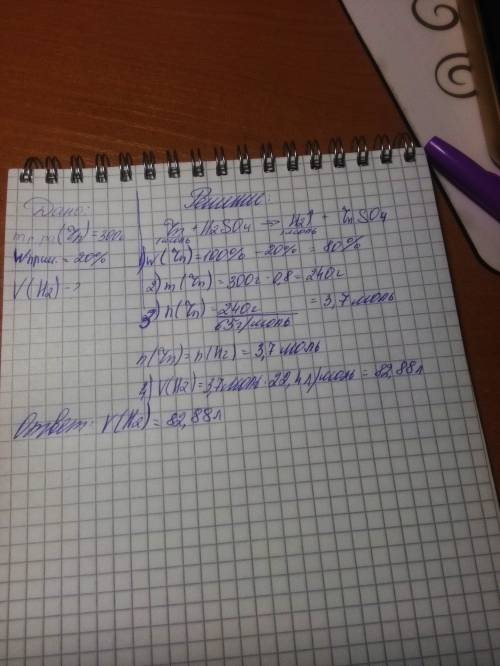 Дано:
m (Zn) = 300г
Wприм. = 20%
V(H2) - ?
Решение:
Zn + H2SO4 → H2↑ + ZnSO4
1моль 1моль
1) w (Zn) = 100% - 20% = 80%
2) m (Zn) = 300г · 0,8 = 240г
3) n(Zn) = 240г / 65г/моль = 3,7 моль
n(Zn) = n(H2) = 3,7 моль
4) V(H2) = 3,7моль · 22,4л/моль = 82,88л
Ответ: V(H2) = 82,88л